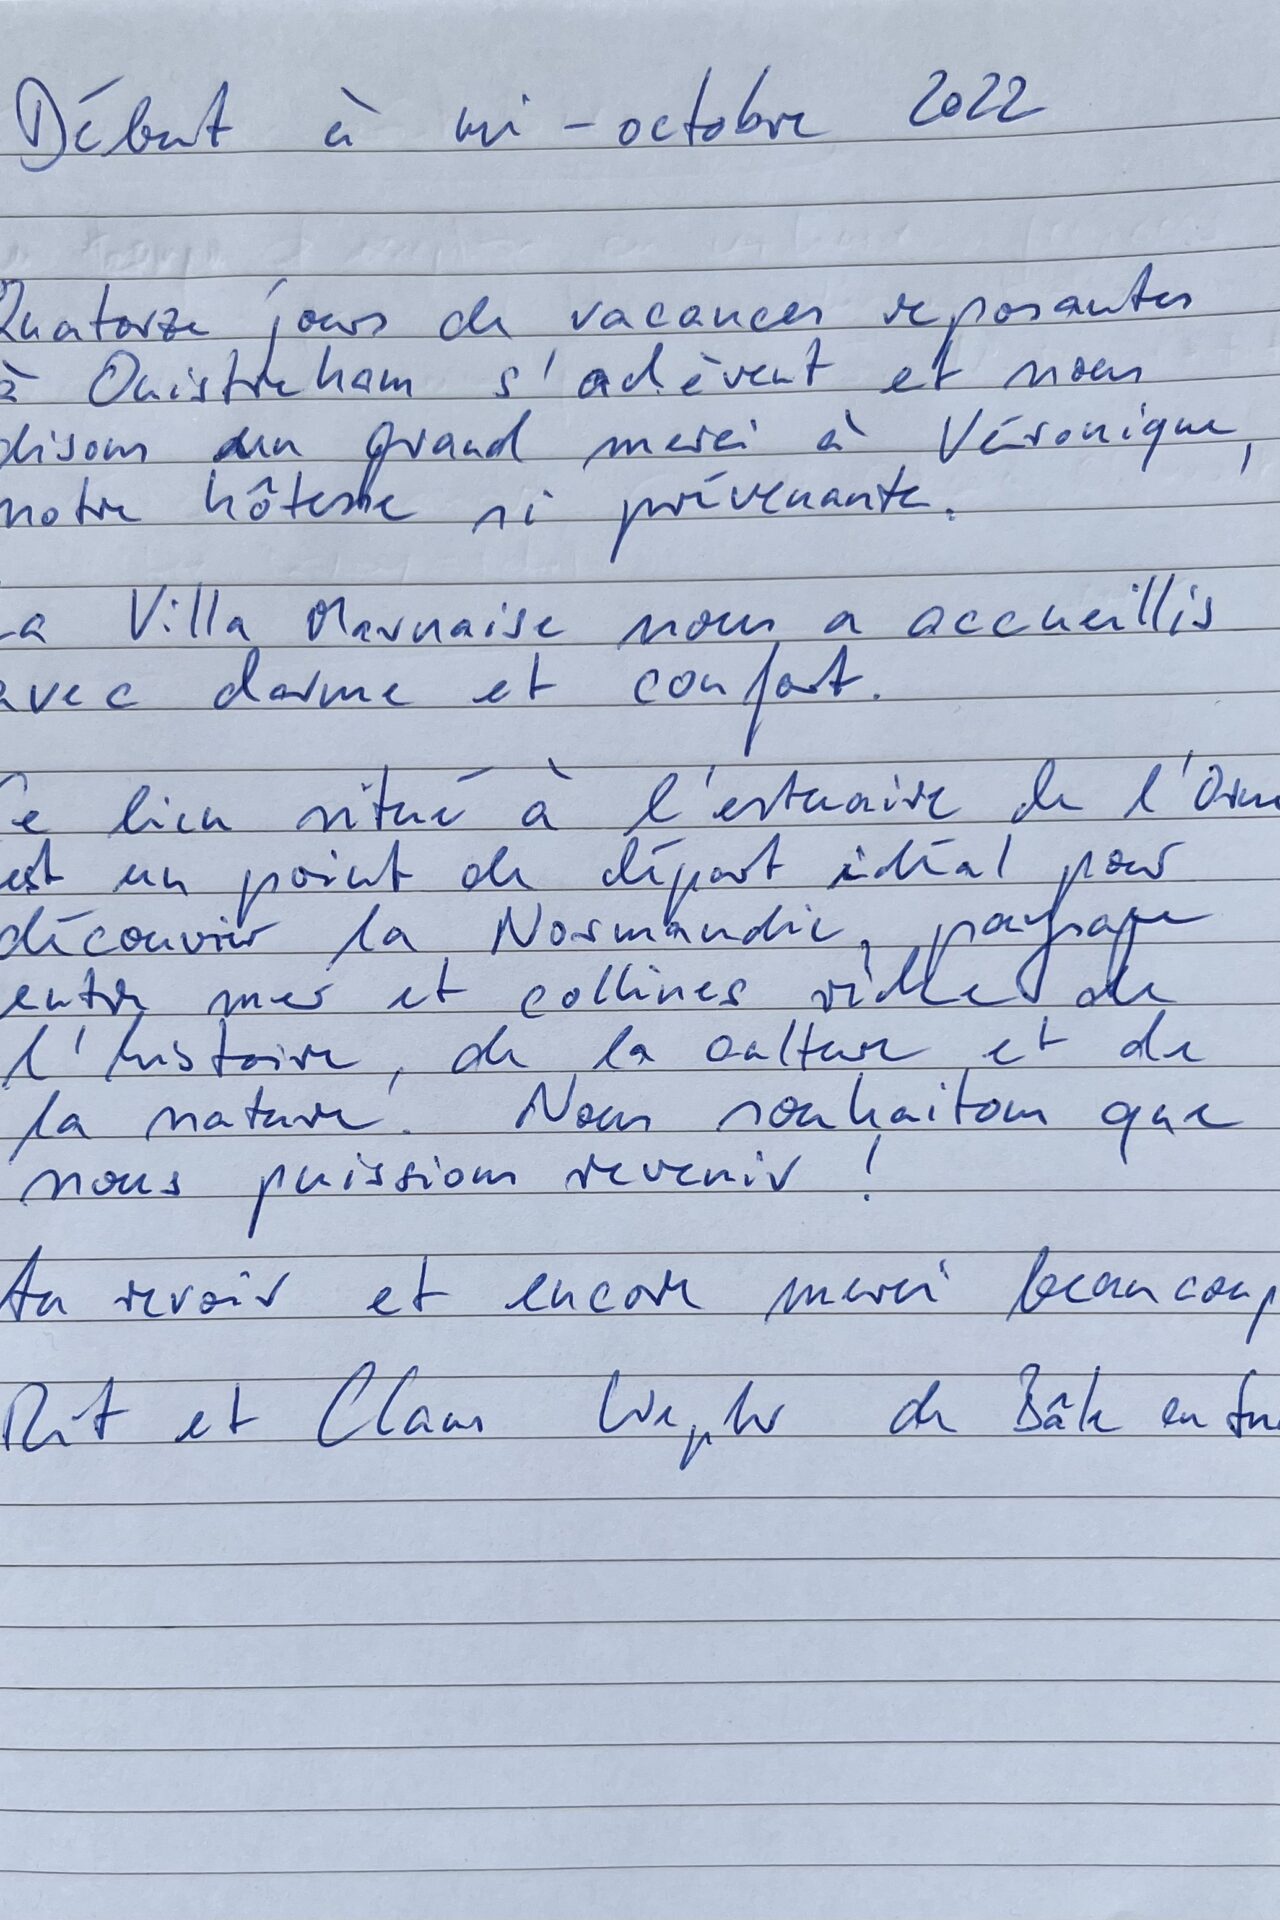 Début à mi-octobre 2022
Quatorze jours de vacances reposantes
à Ouistreham s'achèvent et nous
disons un grand merci à Véronique,
notre hôtesse si prévenante.
La Villa Marnaise nous a accueillis
avec charme et confort.
Ce lieu situé à l'estuaire de l'Orne
est un point de départ idéal pour
découvrir la Normandie, paysage
entre mer et collines riche de
l'histoire, de la culture et de
la nature. Nous souhaitons que
nous puissions revenir !
Au revoir et encore merci beaucoup
et Claus de Bâle en